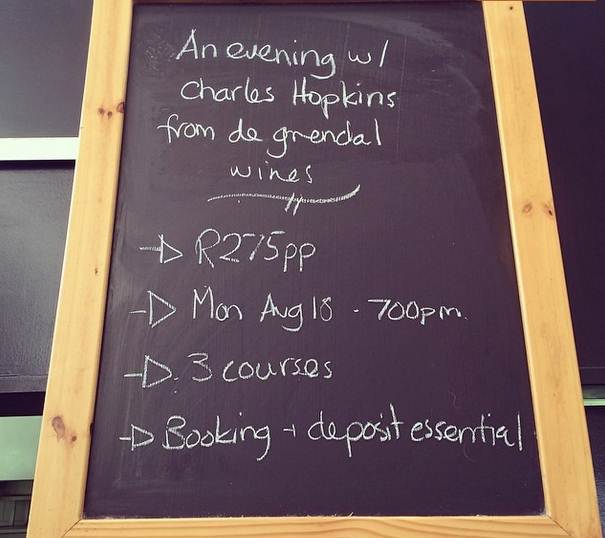 An evening w/
Charles Hopkins
from de grendal
wines
R275pp
Mon Aug 18 - 700pm.
3 courses
Booking + deposit essential